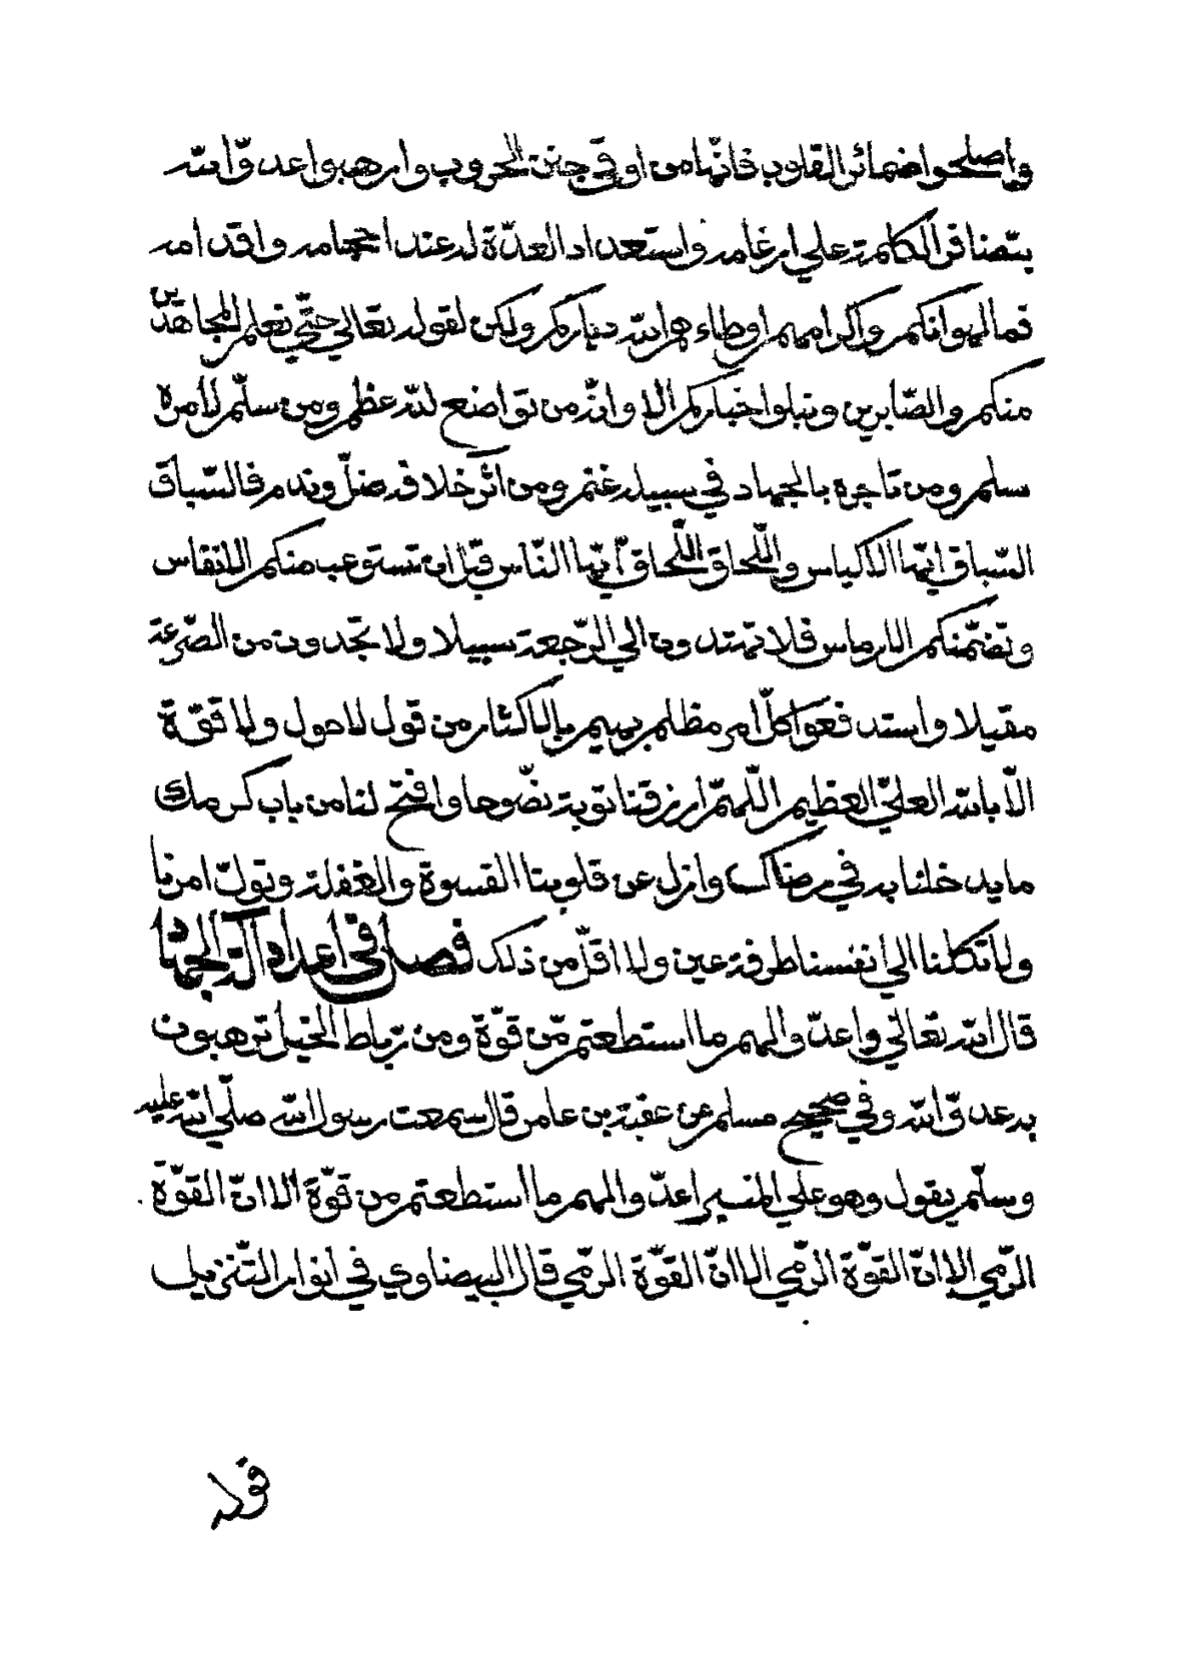 واصلحوا ضمائر القلوب فانّها من اوقى جنن الحروب وارهبوا عدوّ الله
بتضافر الكلمة على ارغامه واستعداد العدّة له عند احجامه واقدامه
فما لهوانكم واكرامهم اوطاءهم الله دياركم ولكن لقوله تعالى حتّى نعلم المجاهدين
منكم والصّابرين ونبلوا خباركم الا وانّه من تواضع لله عظم ومن سلّم لامره
سلم ومن تاجره بالجهاد في سبيله غنم ومن اثر خلافه ضلّ وندم فالسّباق
السّباق ايّها الاكياس واللّحاق اللّحاق ايّها النّاس قبل ان تستوعب منكم الانفاس
وتضمّنكم الارماس فلا تهتدون الى الرّجعة سبيلا ولا تجدون من الصّرعة
مقيلا واستدفعوا كلّ امر مظلم بهيم بالاكثار من قول لا حول ولا قوّة
الّا بالله العليّ العظيم اللّهمّ ارزقنا توبة نصّوحا وافتح لنا من باب كرمك
ما يدخلنا به في رضاك وازل عن قلوبنا القسوة والغفلة وتولّ امرنا
ولا تكلنا الى انفسنا طرفة عين ولا اقلّ من ذلك فصل في اعداد آلة الجهاد
قال الله تعالى واعدّوا لهم ما استطعتم مّن قوّة ومن رّباط الخيل ترهبون
به عدوّ الله وفي صحيح مسلم عن عقبة بن عامر قال سمعت رسول الله صلّى الله عليه
وسلّم يقول وهو على المنبر اعدّوا لهم ما استطعتم من قوّة الا انّ القوّة
الرّمي الا انّ القوّة الرّمي الا انّ القوّة الرّمي قال البيضاوي في انوار التّنزيل
قوله